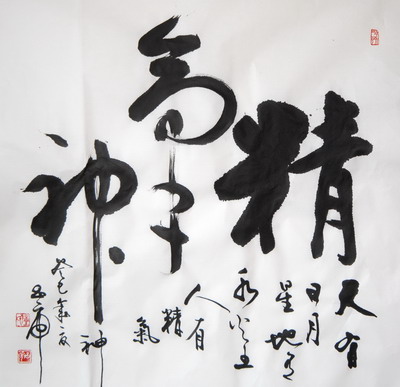 精氣神
天有
日月
星地有
水火土
人有
精
氣
神
癸巳年夏